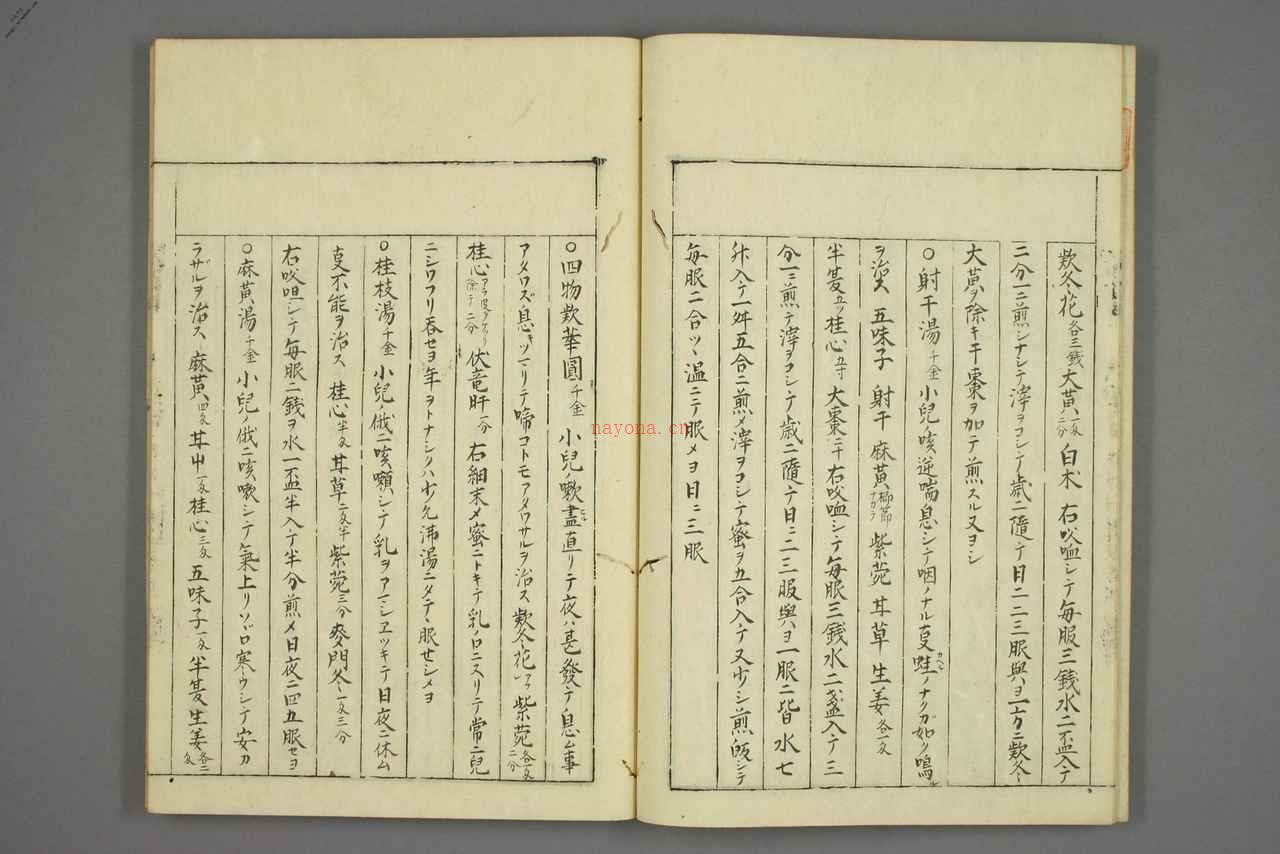 欵冬花各三銭大黄一爻二分白朮 右㕮咀シテ毎服三銭水二盃入テ
二分一ニ煎シナシテ滓ヲコシテ歳ニ隨テ日ニ二三服與ヨ一方ニ欵冬
大黄ヲ除キ干棗ヲ加テ煎スル又ヨシ
○射干湯千金 小兒咳逆喘息シテ咽ノナル㕝蛙ノナクガ如ク鳴
ヲ治ス 五味子 射干 麻黄 紫菀 甘草 生姜各一爻
半夏五ツ桂心五寸 大棗二十 右㕮咀シテ毎服三銭水二盞入テ三
分一ニ煎テ滓ヲコシテ歳ニ隨テ日ニ二三服與ヨ一服ニ皆水七
舛入テ一舛五合ニ煎メ滓ヲコシテ蜜ヲ五合入テ又少シ煎飯シテ
毎服二合ツヽ温ニテ服メヨ日ニ三服
○四物欵華圓千金 小兒ノ嗽晝直リテ夜ハ甚發テ息ム事
アタワズ息ツマリテ啼コトモアタワサルヲ治ス 欵冬花 紫菀各一爻二分
桂心 伏竜肝一分 右細末メ蜜ニトキテ乳ノ口ニスリテ常ニ兒
ニシワフリ呑セヨ年ヲトナシクハ少ク沸湯ニタテヽ服セシメヨ
○桂枝湯千金 小兒ノ俄ニ咳嗽シテ乳ヲアマシヱツキテ日夜ニ休ム
㕝不能ヲ治ス 桂心半爻 甘草二爻半 紫菀三分 麥門冬一爻三分
右㕮咀シテ毎服二銭ヲ水一盃半入テ半分煎メ日夜ニ四五服セヨ
○麻黄湯千金 小兒ノ俄ニ咳嗽シテ氣上リソゾロ寒ウシテ安カ
ラザルヲ治ス 麻黄四爻 甘草一爻 桂心三爻 五味子一爻 半夏生姜各二爻
nayona.cn